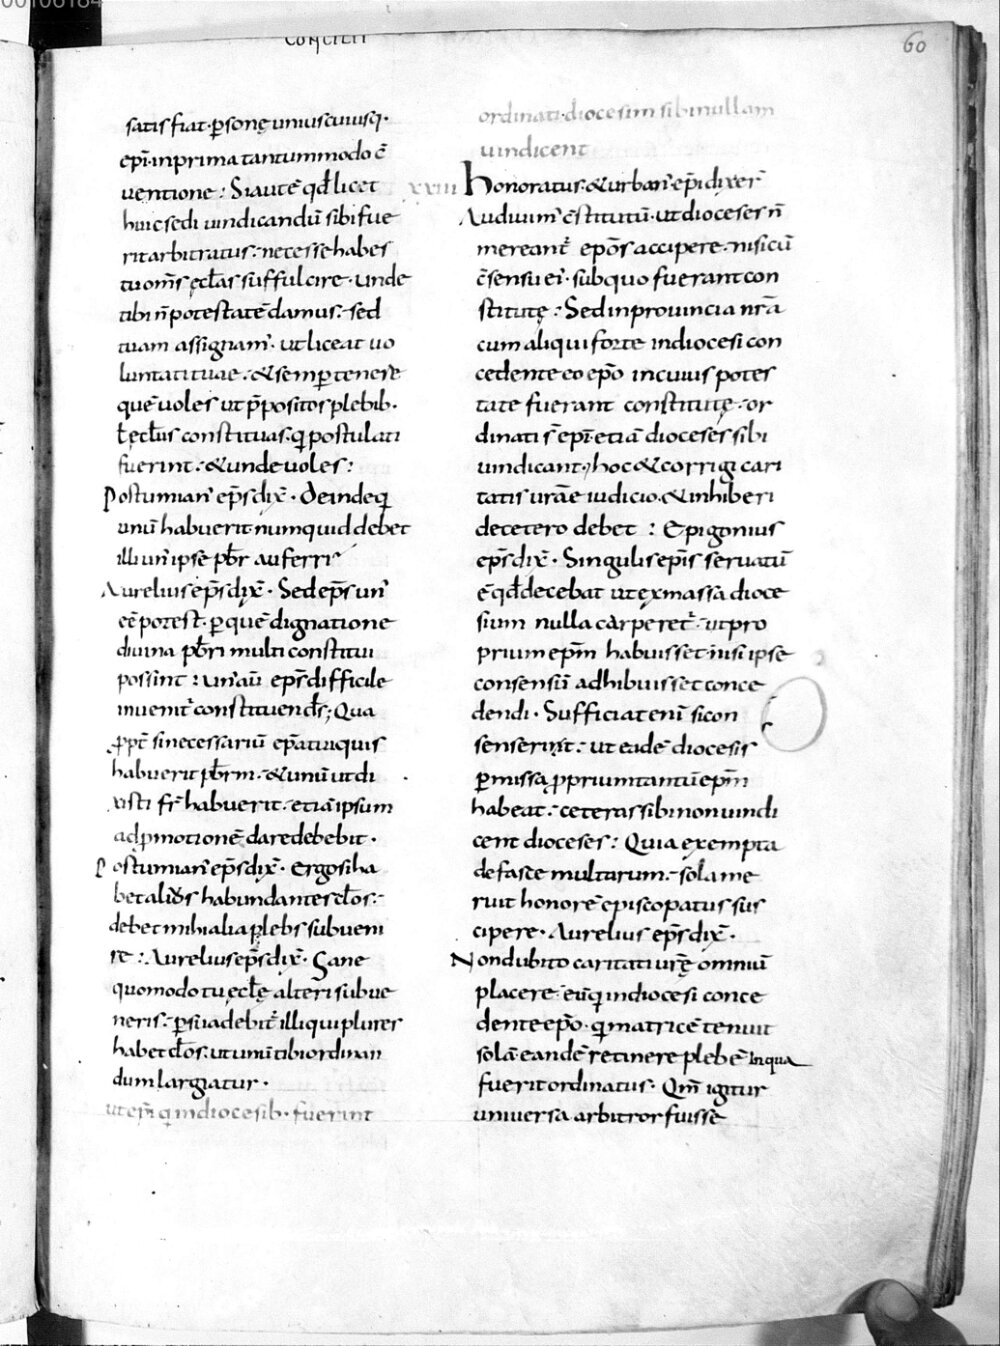 CONCILII
60
satis fiat· ꝑsonę uniuscuiusq·
ep̄i· inprima tantummodo c̄
uentione: Siautē qd̄ licet
huic sedi uindicandū sibi fue
rit arbitratus: necesse habes
tu om̄s ęcl̄as suffulcire· unde
tibi n̄ potestatē damus: sed
tuam assignam̄· ut liceat uo
luntati tuae· & semꝑ tenere
quē uoles ut p̄positos plebib·
t̄ ęcl̄iis constituas· q postulati
fuerint: & unde uoles:
Postumian ep̄s dix̄· Deinde q
unū habuerit numquid debet
illi un ipse pb̄r auferri
Aurelius ep̄s dix̄· Sed ep̄s un
eē potest· ꝑ quē dignatione
diuina pb̄ri multi constitui
possint: un aū ep̄s difficile
inuenit constituend̄s; Qua
ꝓpt̄ si necessariū ep̄atui quis
habuerit pb̄rm· & unū ut di
xisti fr̄ habuerit: etiā ipsum
ad ꝓmotionē dare debebit·
Postumian ep̄s dix̄· Ergo si ha
bet alius habundantes cl̄os:
debet mihi alia plebs subueni
re: Aurelius ep̄s dix̄· Sane
quomodo tu ęcl̄ę alteri subue
neris: ꝑsuadebit illi qui plures
habet cl̄os: ut unū tibi ordinan
dum largiatur·
ut ep̄i q in diocesib· fuerint
ordinati· diocesim sibi nullam
uindicent
xxiii Honoratus· & urban ep̄i dixer
Audiuim c̄stitutū· ut dioceses n̄
mereant ep̄os accipere· nisi cū
c̄sensu ei· sub quo fuerant con
stitutę: Sed in prouincia nr̄a
cum aliqui forte in diocesi con
cedente eo ep̄o in cuius potes
tate fuerant constitutę· or
dinati s̄ ep̄i· etiā dioceses sibi
uindicant, hoc & corrigi cari
tatis ur̄ae iudicio· & inhiberi
de cetero debet: Epigonius
ep̄s dix̄· Singulis ep̄is seruatū
ē qd̄ decebat ut ex massa dioce
sium nulla carperet· ut pro
prium ep̄m habuisset nisi ipse
consensū adhibuisset conce
dendi· Sufficiat enī si con
senserint: ut eadē diocesis
ꝑmissa ꝓprium tantū ep̄m
habeat: ceteras sibi non uindi
cent dioceses: Quia exempta
de fasce multarum: sola me
ruit honorē episcopatus sus
cipere· Aurelius ep̄s dix̄·
Non dubito caritati ur̄ę omniū
placere· eū q in diocesi conce
dente ep̄o· q matricē tenuit
solā eandē retinere plebē in qua
fuerit ordinatus· Qm̄ igitur
uniuersa arbitror fuisse